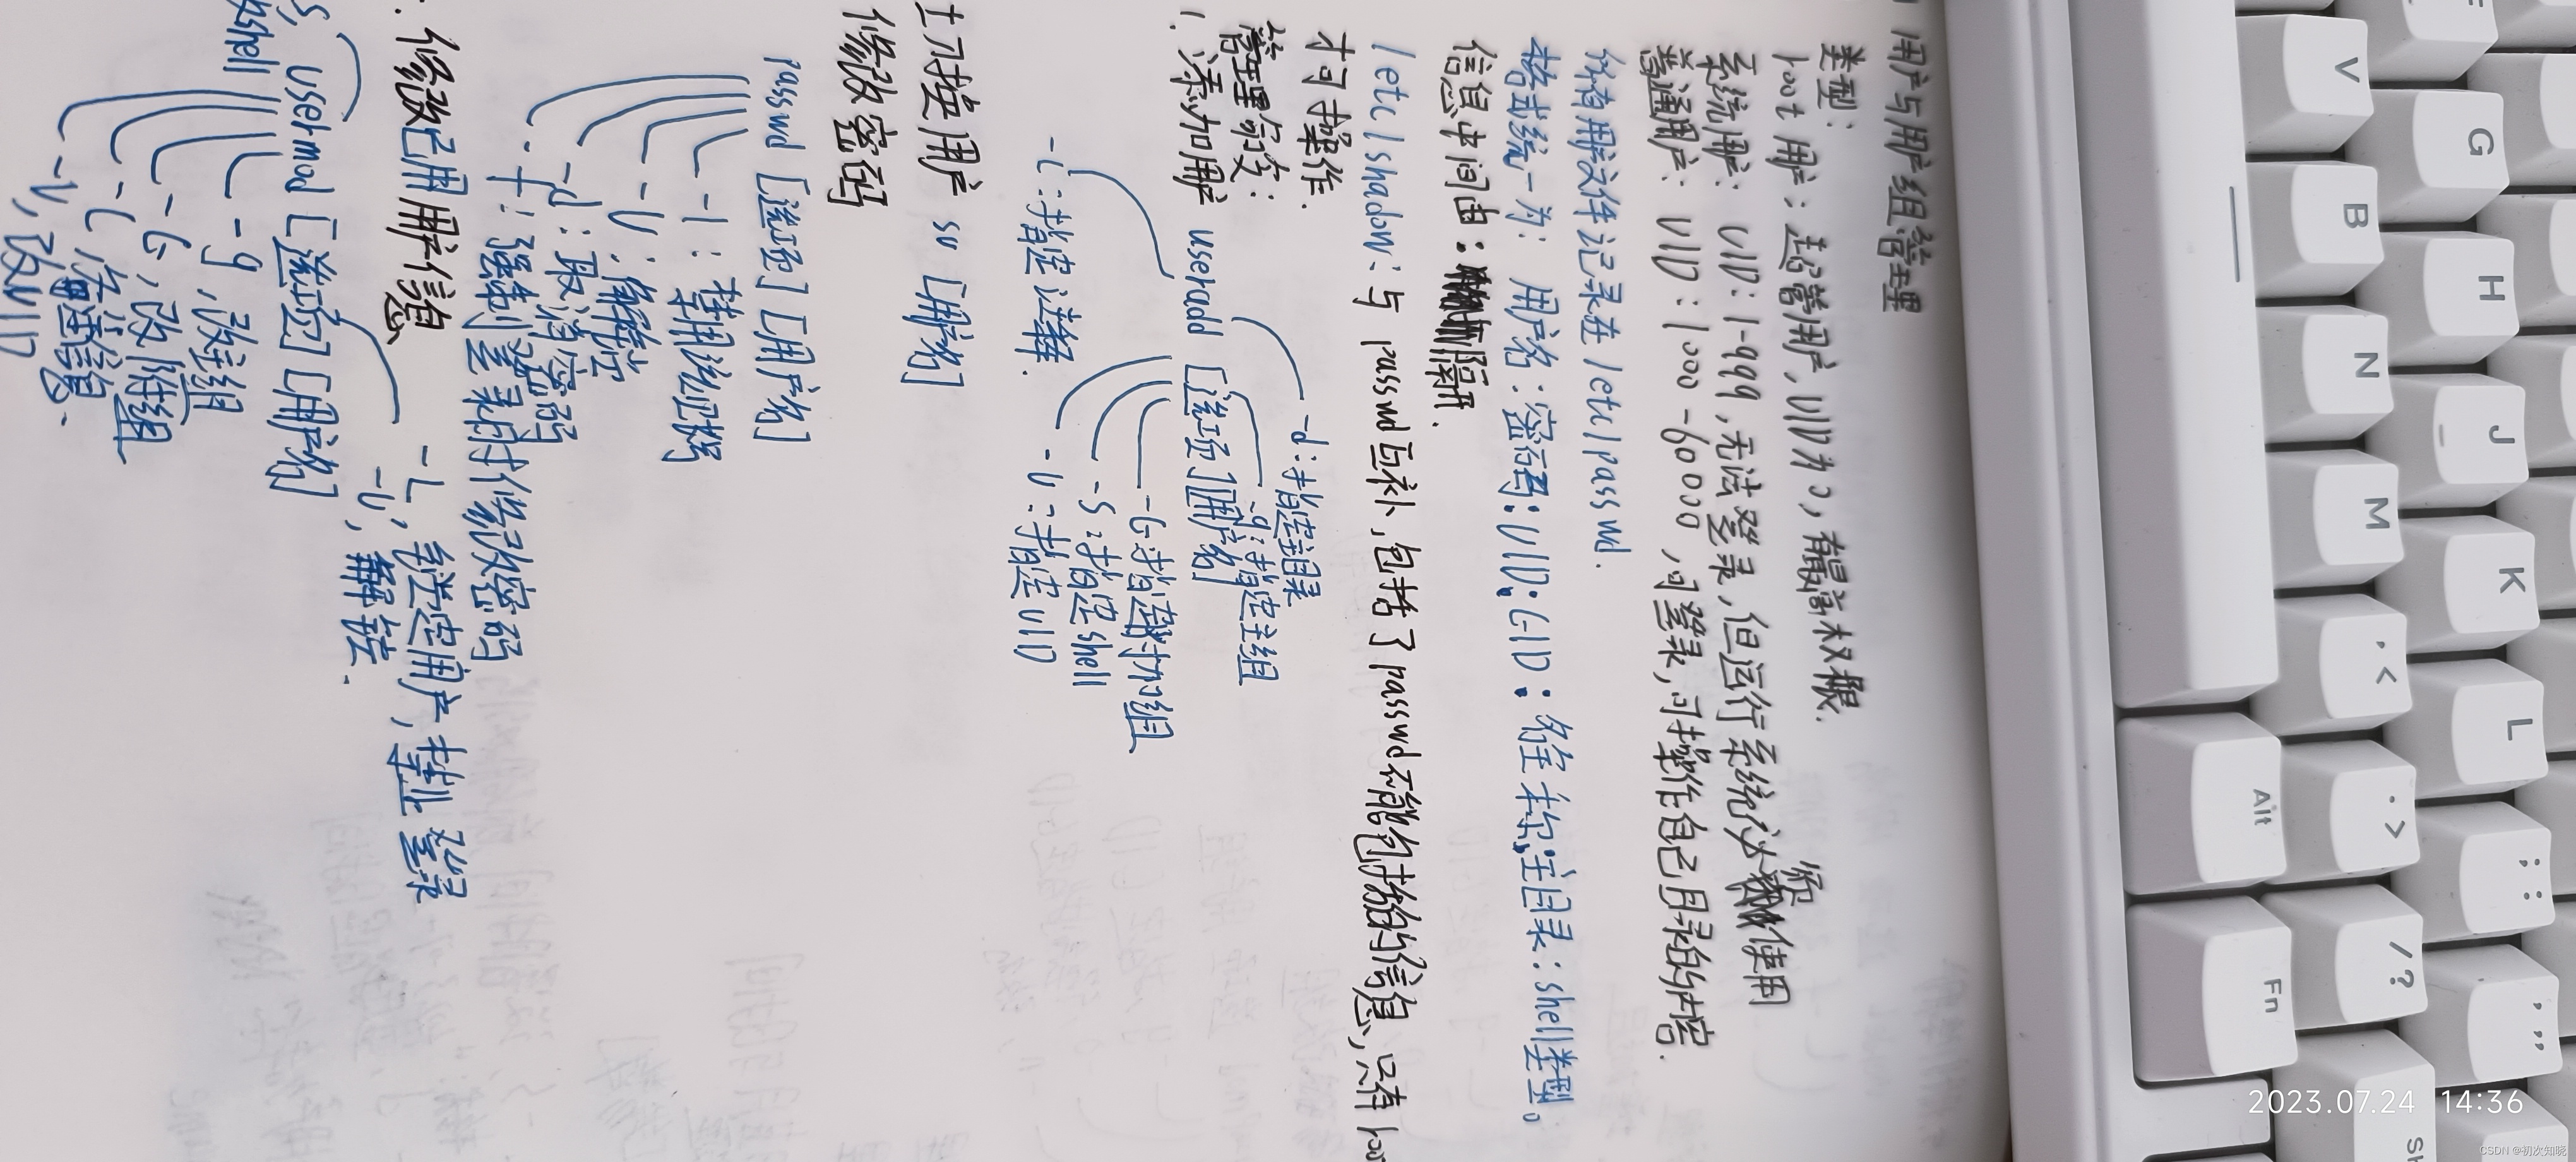 用户与用户组管理
类型:
root用户: 超管用户, UID为0, 有最高权限.
系统用户: UID: 1-999, 无法登录, 但运行系统必须使用
普通用户: UID: 1000-60000, 可登录, 可操作自己目录的内容.
所有用户文件记录在/etc/passwd.
格式统一为: 用户名:密码:UID:GID:名全称:主目录:shell类型。
信息中间由:隔开.
/etc/shadow: 与passwd互补, 包括了passwd不能包括的信息, 只有roo
才可操作.
管理命令:
1. 添加用户 useradd [选项] [用户名]
-d: 指定主目录
-g: 指定主组
-G: 指定附加组
-s: 指定shell
-U: 指定UID
-c: 指定注释.
切换用户 su [用户名]
修改密码
passwd [选项] [用户名]
-l: 禁用
-U: 解锁
-d: 取消密码
-f: 强制登录时修改密码
修改已用用户信息
usermod [选项] [用户名]
-L, 锁定用户, 禁止登录
-U, 解锁.
-g, 改主组
-G, 改附组
-c, 修
-U, 改UID
s,
shell
V
G
B
H
N
J
M
K
,<
L
Alt
.>
;:
Fn
/?
2023.07.24 14:36
CSDN @初次知晓